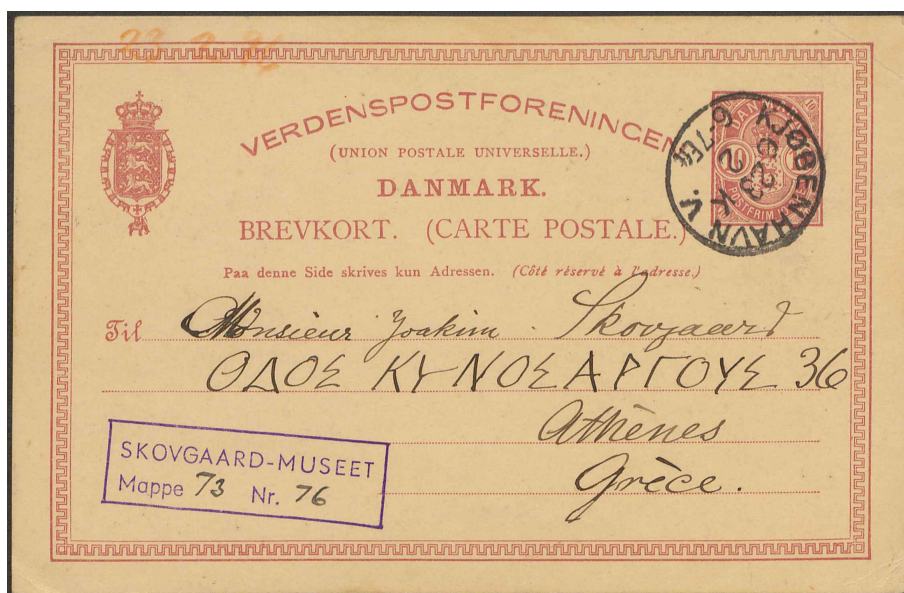 VERDENSPOSTFORENINGEN
(UNION POSTALE UNIVERSELLE.)
DANMARK.
BREVKORT. (CARTE POSTALE.)
Paa denne Side skrives kun Adressen. (Côté réservé à l'adresse.)
KJØBENHAVN V.
6-7 E
23
2
10
POSTFRIM
Til Monsieur Joakim Skovgaard
ΟΔΟΣ ΚΥΝΟΣΑΡΓΟΥΣ 36
Athènes
Grèce.
SKOVGAARD-MUSEET
Mappe 73 Nr. 76